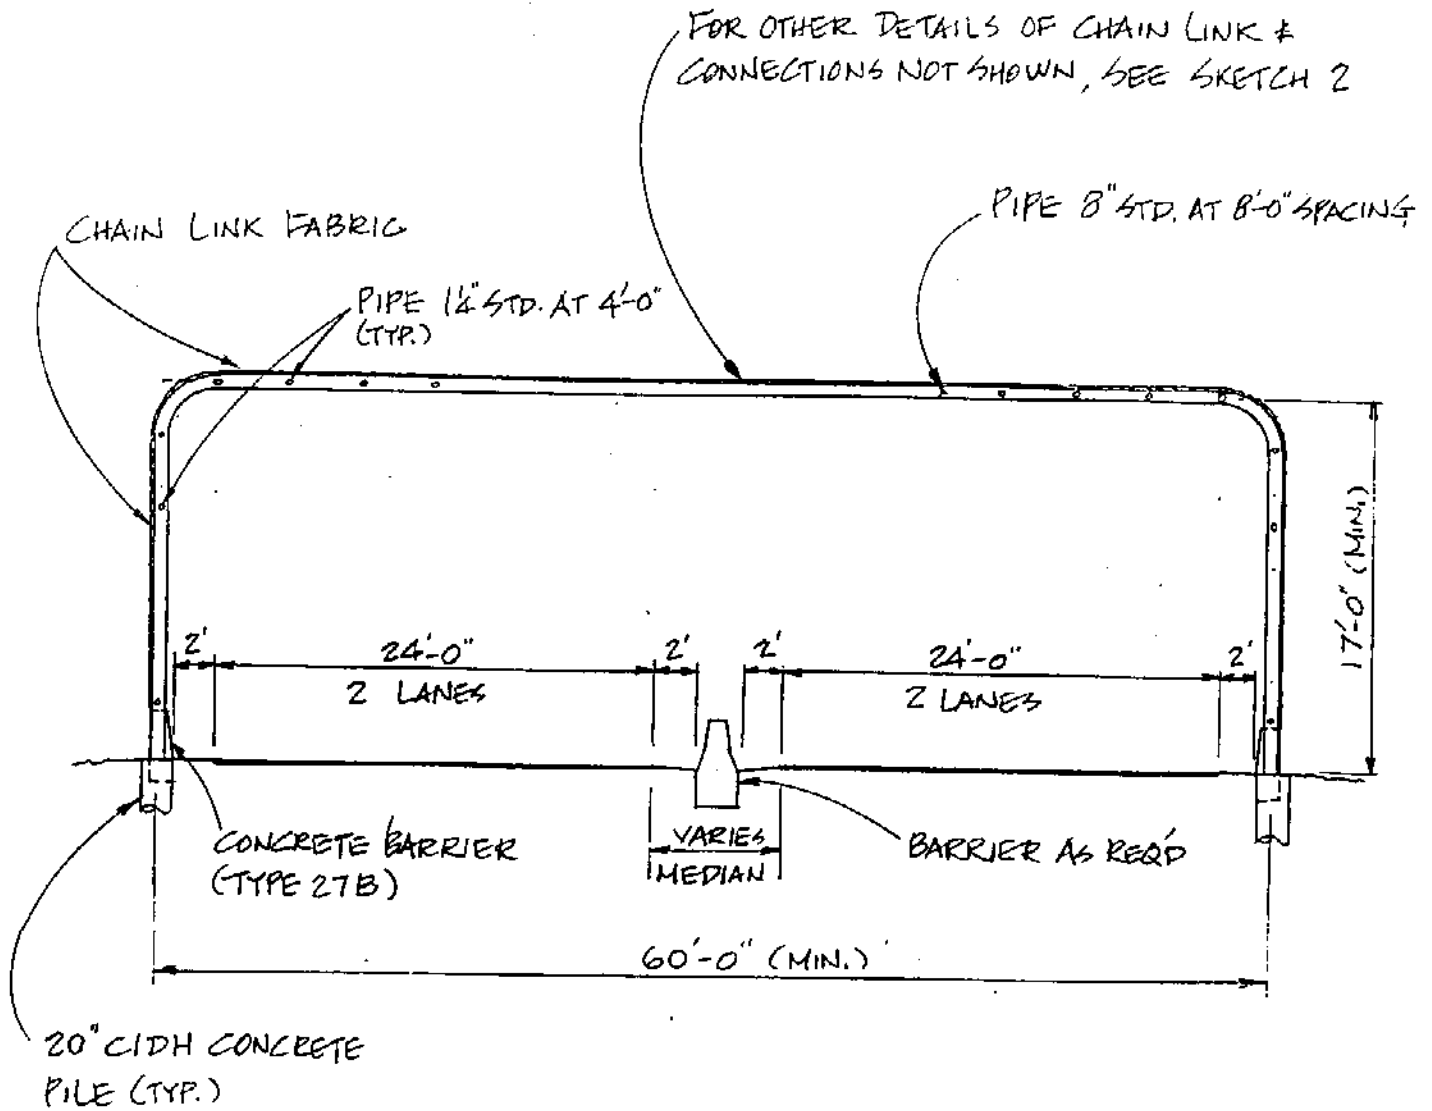 FOR OTHER DETAILS OF CHAIN LINK &
CONNECTIONS NOT SHOWN, SEE SKETCH 2
PIPE 8" STD. AT 8'-0" SPACING
CHAIN LINK FABRIC
PIPE 1¼" STD. AT 4'-0"
(TYP.)
17'-0" (MIN.)
2'
24'-0"
2'
2'
24'-0"
2'
2 LANES
2 LANES
CONCRETE BARRIER
(TYPE 27B)
VARIES
MEDIAN
BARRIER AS REQ'D
60'-0" (MIN.)
20" CIDH CONCRETE
PILE (TYP.)